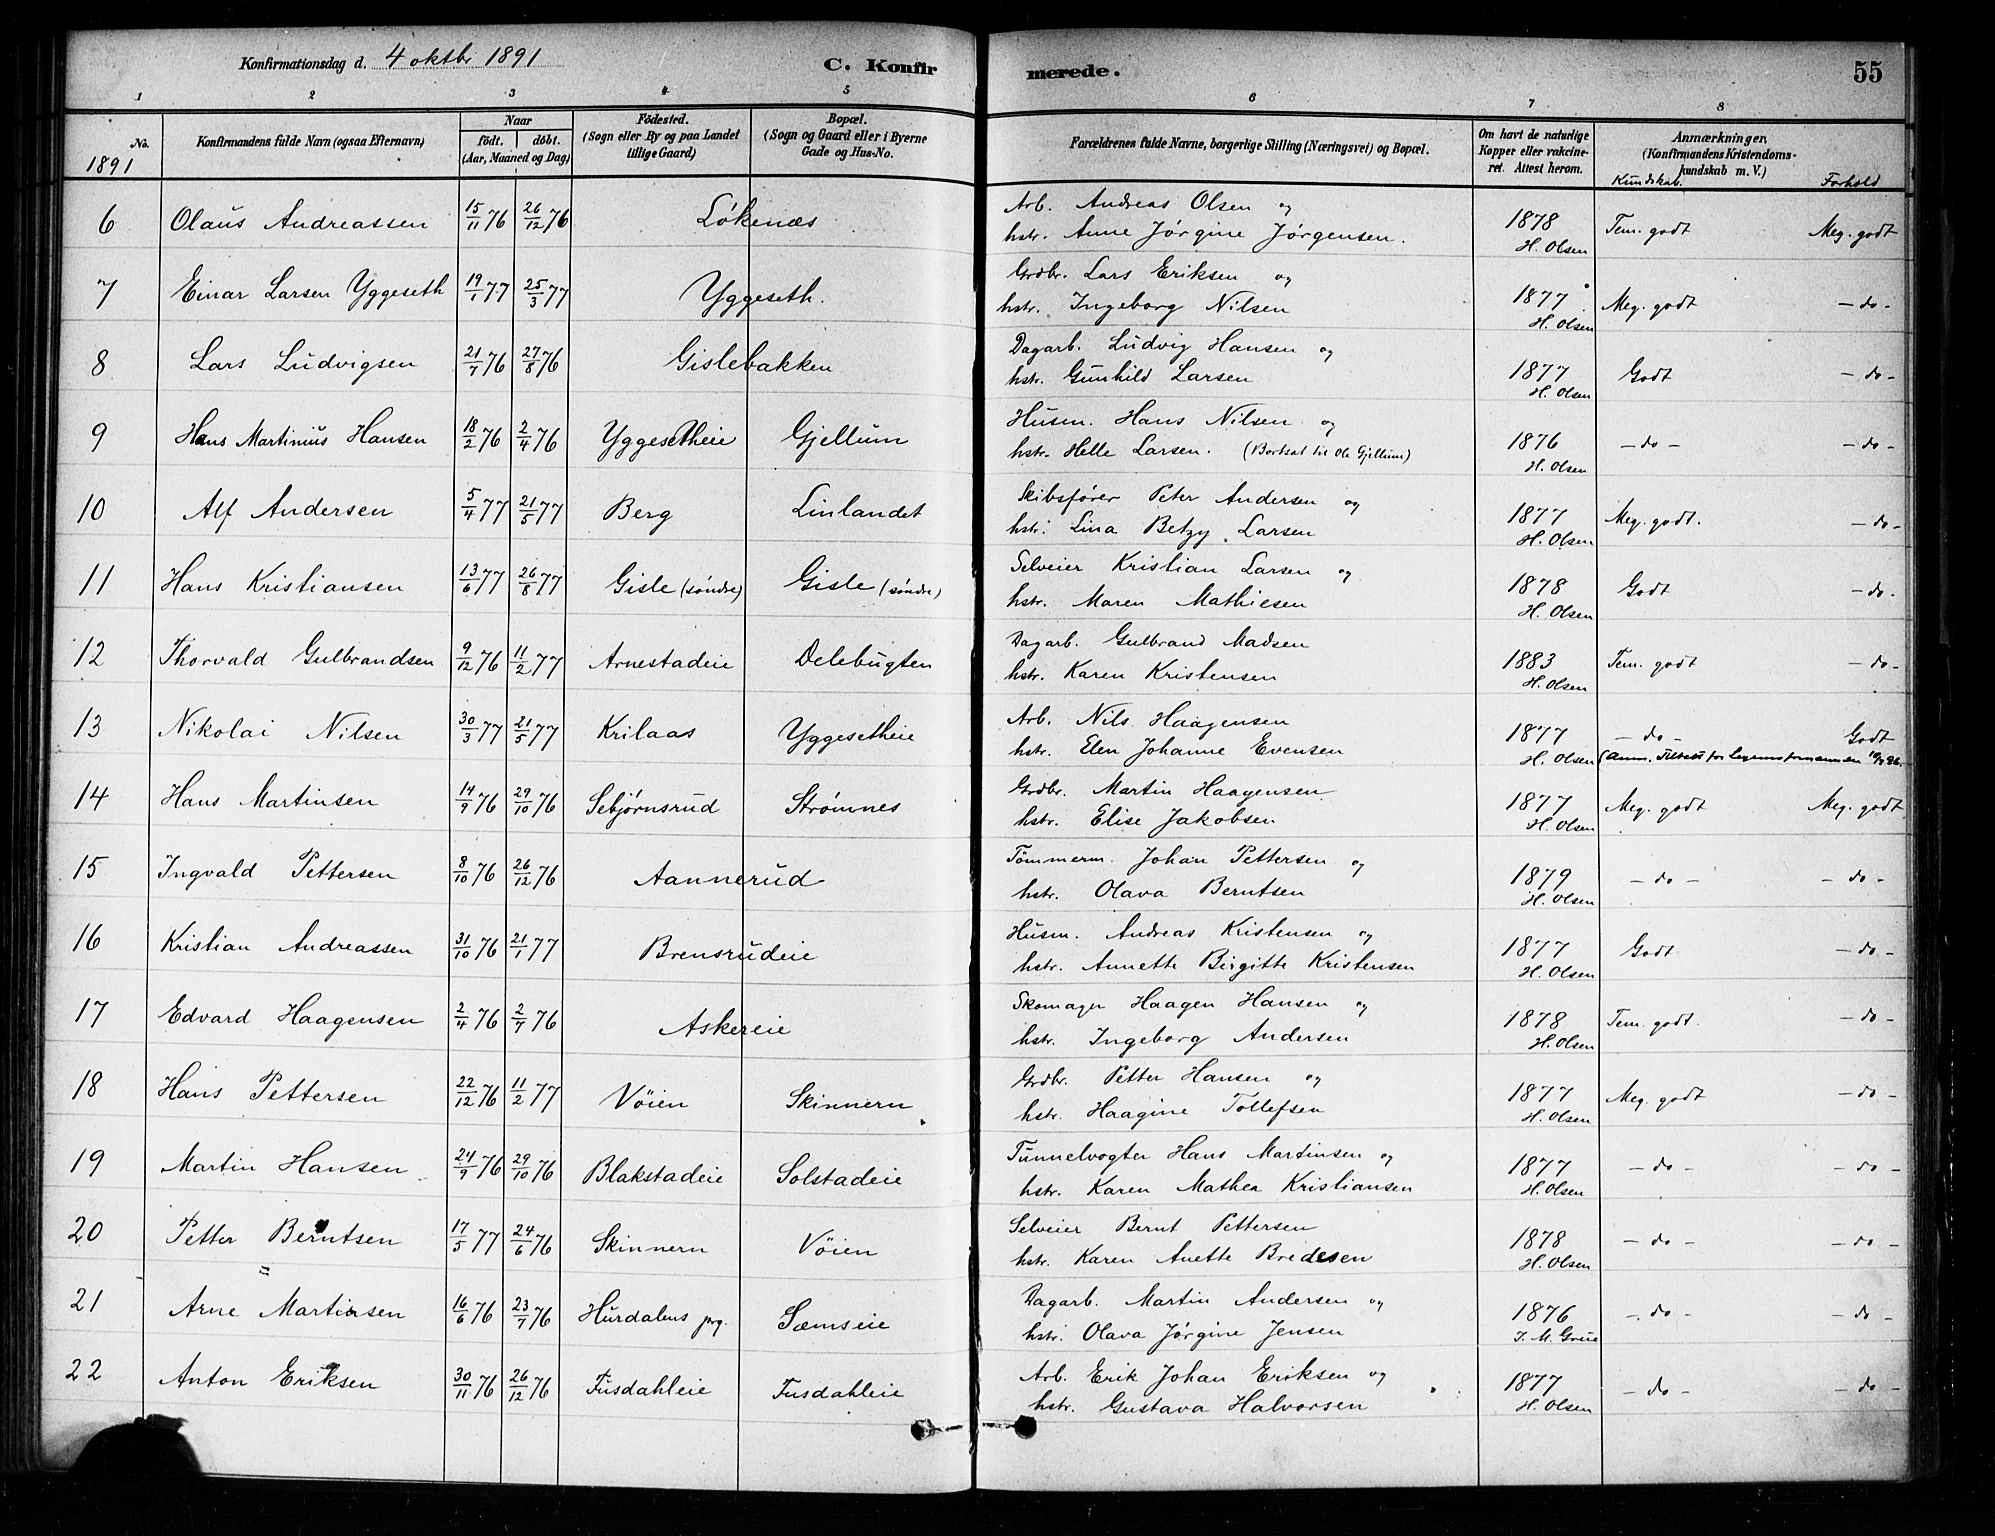 Konfirmationsdag d. 4 oktbr 1891 C. Konfirmerede. 55
1 2 3 4 5 6 7 8
No. 1891
Konfirmandens fulde Navn (ogsaa Efternavn)
Naar født. døbt. (Aar, Maaned og Dag)
Födested. (Sogn eller By og paa Landet tillige Gaard)
Bopæl. (Sogn og Gaard eller i Byerne Gade og Hus-No.
Forældrenes fulde Navne, borgerlige Stilling (Næringsvei) og Bopæl.
Om havt de naturlige Kopper eller vakcineret. Attest herom.
Anmærkninger, (Konfirmandens Kristendomskundskab m. V.)
Kundskab. Forhold
6 Olaus Andreassen 15/11 76 26/12 76 Løkenæs Arb. Andreas Olsen og 1878 Tem. godt Meg. godt
hstr. Anne Jørgine Jørgensen. H. Olsen
7 Einar Larsen Yggeseth 19/1 77 25/3 77 Yggeseth. Grdbr. Lars Eriksen og 1877 Meg. godt - do -
hstr. Ingeborg Nilsen H. Olsen
8 Lars Ludvigsen 21/7 76 27/8 76 Gislebakken Dagarb. Ludvig Hansen og 1877 Godt - do -
hstr. Gunhild Larsen H. Olsen
9 Hans Martinius Hansen 18/2 76 2/4 76 Yggesetheie Gjellum Husm. Hans Nilsen og 1876 - do - - do -
hstr. Helle Larsen. (Bortsat til Ole Gjellum) H. Olsen
10 Alf Andersen 5/4 77 21/5 77 Berg Linlandet Skibsfører Peter Andersen og 1877 Meg. godt. - do -
hstr. Lina Betzy Larsen H. Olsen
11 Hans Kristiansen 13/6 77 26/8 77 Gisle (søndre) Gisle (søndre) Selveier Kristian Larsen og 1878 Godt - do -
hstr. Maren Mathiesen H. Olsen
12 Thorvald Gulbrandsen 9/12 76 11/2 77 Arnestadeie Delebugten Dagarb. Gulbrand Madsen 1883 Tem. godt - do -
hstr. Karen Kristensen H. Olsen
13 Nikolai Nilsen 30/3 77 21/5 77 Krilaas Yggesetheie Arb. Nils Haagensen 1877 - do - Godt
hstr. Elen Johanne Evensen H. Olsen (Anm. for
14 Hans Martinsen 14/9 76 29/10 76 Sebjørnsrud Strømnes Grdbr. Martin Haagensen 1877 Meg. godt Meg. godt
hstr. Elise Jakobsen H. Olsen
15 Ingvald Pettersen 8/10 76 26/12 76 Aannerud Tømmerm. Johan Pettersen og 1879 - do - - do -
hstr. Olava Berntsen H. Olsen
16 Kristian Andreassen 31/10 76 21/1 77 Brensrudeie Husm. Andreas Kristensen og 1877 Godt - do -
hstr. Annette Birgitte Kristensen H. Olsen
17 Edvard Haagensen 2/4 76 2/7 76 Askereie Skomager Haagen Hansen og 1878 Tem. godt. - do -
hstr. Ingeborg Andersen H. Olsen
18 Hans Pettersen 22/12 76 11/2 77 Vöien Skinnern Grdbr. Petter Hansen og 1877 Meg. godt - do -
hstr. Haagine Tollefsen H. Olsen
19 Martin Hansen 24/9 76 29/10 76 Blakstadeie Solstadeie Tunnelvogter Hans Martinsen og 1877 - do - - do -
hstr. Karen Mathea Kristiansen H. Olsen
20 Petter Berntsen 17/5 77 24/6 76 Skinnern Vöien Selveier Bernt Pettersen 1878 - do - - do -
hstr. Karen Anette Bredesen H. Olsen
21 Arne Martinsen 16/6 76 23/7 76 Hurdalens prg. Sæmseie Dagarb. Martin Andersen og 1876 - do - - do -
hstr. Olava Jørgine Jensen J. M. Greue
22 Anton Eriksen 30/11 76 26/12 76 Fusdahleie Fusdahleie Arb. Erik Johan Eriksen og 1877 - do - - do -
hstr. Gustava Halvorsen H. Olsen